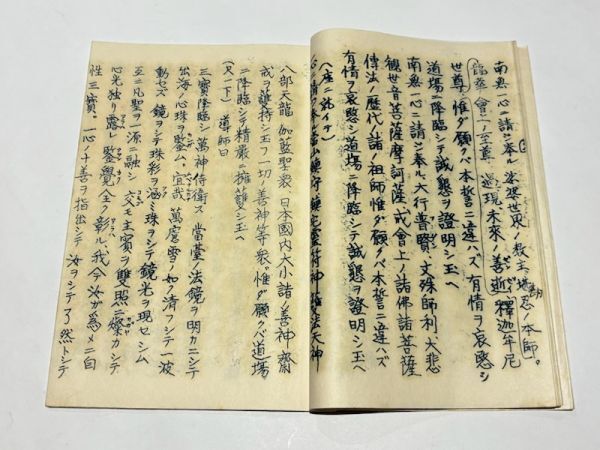 南無一心ニ請シ奉ル娑婆世界ノ教主地忍ノ本師。
臨華會ノ一ノ至尊過現未來ノ善逝釋迦牟尼
世尊惟ダ願クハ本誓ニ違ハズ有情ヲ哀愍シ
道場ニ降臨シテ誠懇ヲ證明シ玉ヘ
南無一心ニ請シ奉ル大行普賢、文殊師利、大悲
觀世音菩薩摩訶薩戒會上ノ諸佛諸菩薩
傳法ノ歴代ノ諸ノ祖師惟ダ願クハ本誓ニ違ハズ
有情ヲ哀愍シ道場ニ降臨シテ誠懇ヲ證明シ玉ヘ
八部天龍伽藍聖衆、日本國内大小諸ノ善神齋
戒ヲ護持シ玉フ一切ノ善神等衆惟ダ願クハ道場
ニ降臨シテ精嚴ニ擁護シ玉ヘ
(尺一下) 導師曰
三寳降臨シ萬神侍衛ス當堂ノ法鏡ヲ明カニシテ
出海ノ心珠ヲ鑒ム、宜哉萬麿雪ノ如ク清フシテ一波
動セズ鏡ヲシテ珠彩ヲ涵ミ珠ヲシテ鏡光ヲ現セシム
互ニ凡聖ヲ一源ニ融シ交モ主賓ヲ雙照ニ燦カシテ
心光独リ露レ鑒覺全ク彰ル、我今汝ガ為メニ自
性三寳、一心ノ十善ヲ指出シテ汝ヲシテ了然トシテ